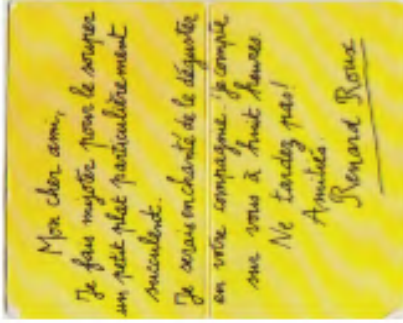 Mon cher ami,
Je fais mijoter pour le souper
un petit plat particulièrement
succulent.
Je serais enchanté de le déguster
en votre compagnie je compte
sur vous à huit heures.
Ne tardez pas!
Amitiés.
Renard Roux